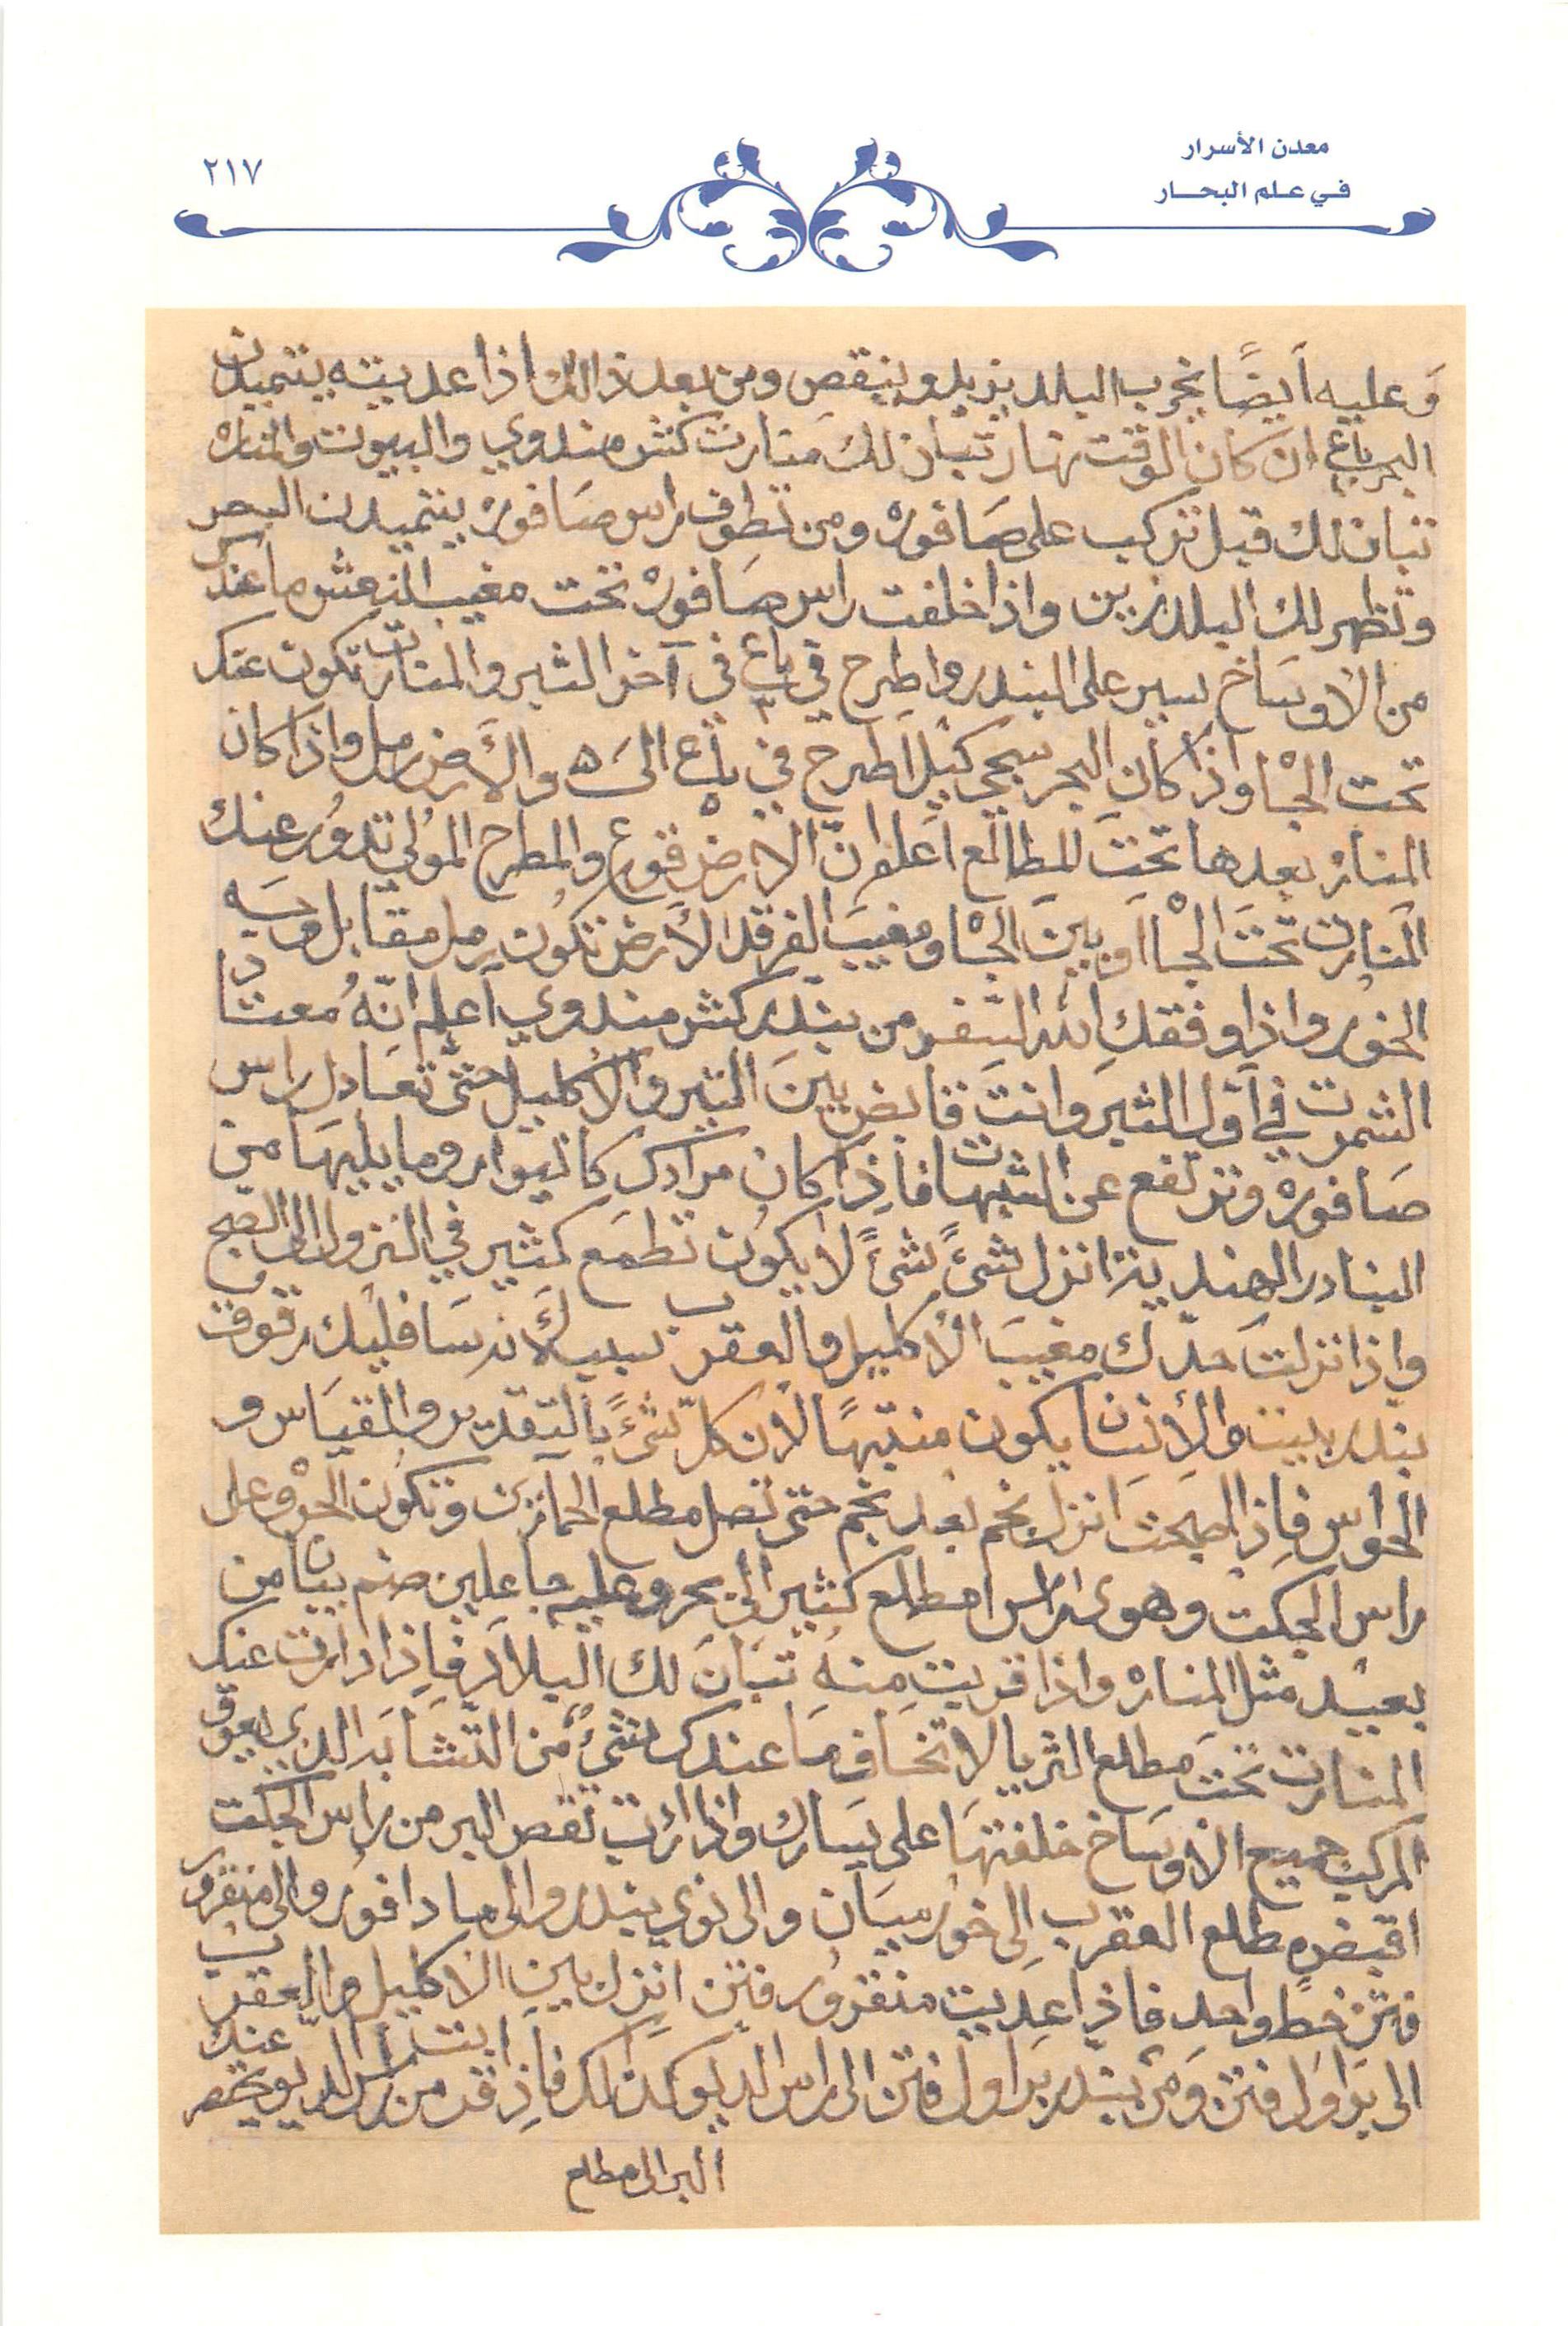 معدن الأسرار
في علم البحار
٢١٧
وَعليه اَيضًا يخرب البلد يزيد وينقص ومن بعد ذالك اذا عديته يتميدن
البحر باع ان كان الوقت نهار تبان لك منارت كش مندوي والبيوت والمناره
تبان لك قبل تركب على صَافوره ومن تطوف راس صَافوره يتميدن البحر
وتظهر لك البلد زين واذا خلفت راس صَافوره تحت مغيب النعش ما عندك
من الاوسَاخ سير على البندر واطرح في باع ٣ في آخر الثير والمنارت تكون عنك
تحت الجْاه واذا كان البحر سجي كَيْل اطرح في باع ٥ الىَ ٥ والأَرض رمل واذا كان
المناره بعدها تحتَ للمطالع اَعلم انّ الارض قوع والمطرح المولي تدوُر عنك
المَنارت تحتَ الجْاه اَو بينَ الجْاه ومغيبَ الفرقد الأَرض تكُون رمل مقابل وجَه
الخوُر واذا وفقك الله السّفر من بندر كش مندوي اَعلم انّهُ معتاد
الشمرت في اَوّل الثير وانتَ قابض بينَ التير والاكليل حتّى تعَادل راس
صَافوره وترتفع عن الشبهات فاِذا كان مرادك كاتيوار وما يليهَا من
البنادر الهندية انزل شئً شئً لا يكوُن تطمَع كثير في النزول الى الصبح
واِذا نزلتَ حدّك مغيبَ الاكليل والعقرب سبب لأنه سَافليك رقوق
بندر بيت والاِنسان يكون منتبهًا لأن كلّ شئً بالتقدير والقيَاس و
الحوَاس فاِذا اصبحت اَنزل نجم بعد نجم حتى تصل مطلع الحمارين وتكوُن الجوْش على
راس الجكت وهوى راس مطلع كثير الى بحر وعليه جاعلين صنم يبان من
بعيد مثل المناره واذا قربت منهُ تبَانَ لك البلاد فاِذا دارت عنك
المنارت تحت مطلع الثريا لا تخَاف مَا عندك شئٌ من التّشابه الذي يعوق
المركب جميع الاوسَاخ خلفتهَا على يسَارك واذا اردت تقص البر من راس الجكت
اقبض مطلع العقرب اِلى خوُر ميَان والى نوي بندر والى مادافور والى منقرور
فتن خط واحد فاذا عديت منقروُر فتن انزل بين الاكليل والعقرب
الى برَاوَل فتن وَمن بندر برَاول فتن الى راس الديو كذالك فاِذا انت قد من راس الديو يخصر عنك
البر الى مطلع